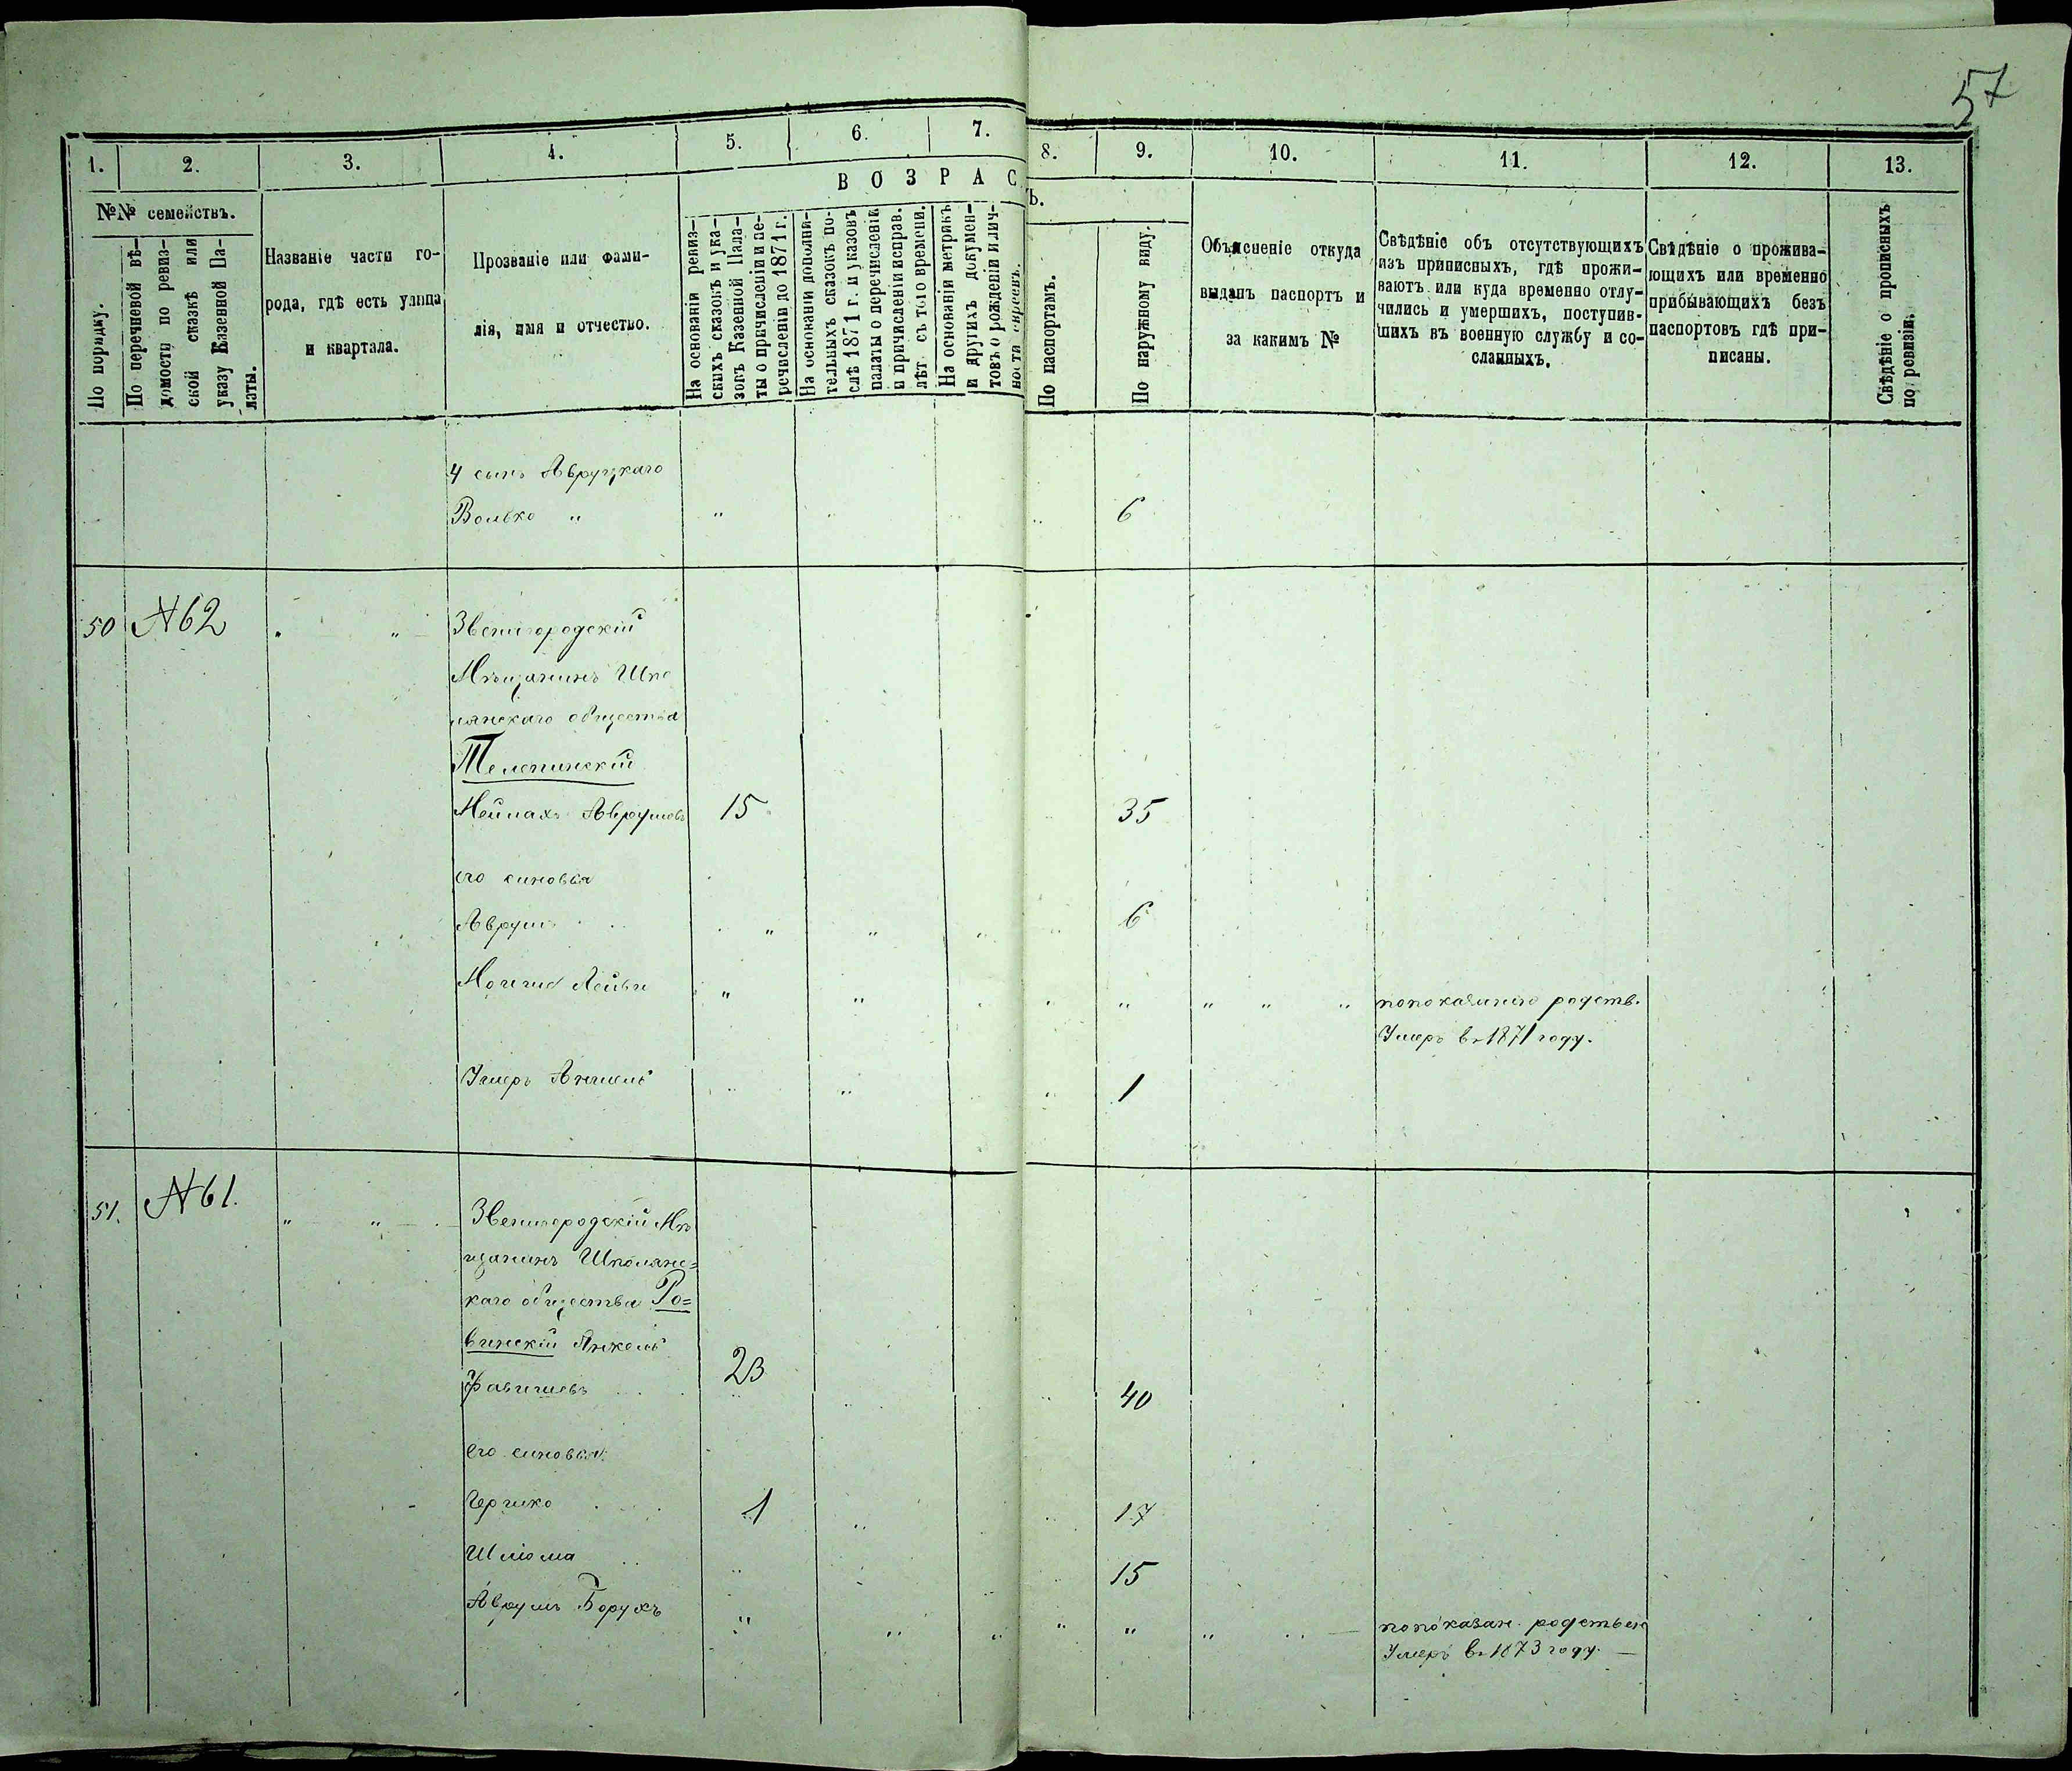 57
1. 2. 3. 4. 5. 6. 7. 8. 9. 10. 11. 12. 13.
ВОЗРАС Ъ.
№№ семействъ.
По порядку.
По перечневой вѣ-
домости по ревиз-
ской сказкѣ или
указу Казенной Па-
латы.
Названіе части го-
рода, гдѣ есть улица
и квартала.
Прозваніе или фами-
лія, имя и отчество.
На основаніи ревиз-
скихъ сказокъ и ука-
зовъ Казенной Пала-
ты о причисленіи и пе-
речисленіи до 1871 г.
На основаніи дополни-
тельныхъ сказокъ по-
слѣ 1871 г. и указовъ
палаты о перечисленіи
и причисленіи исправ.
лѣт. съ того времени.
На основаніи метрикъ
и другихъ докумен-
товъ о рожденіи и лич-
ности евреевъ.
По паспортамъ.
По наружному виду.
Объясненіе откуда
выданъ паспортъ и
за какимъ №
Свѣдѣніе объ отсутствующихъ
изъ приписныхъ, гдѣ прожи-
ваютъ или куда временно отлу-
чились и умершихъ, поступив-
шихъ въ военную службу и со-
сланныхъ.
Свѣдѣніе о прожива-
ющихъ или временно
прибывающихъ безъ
паспортовъ гдѣ при-
писаны.
Свѣдѣніе о прописныхъ
по ревизіи.
4 сынъ Авруцкаго
Волько " " 6
50 №62 " " Звенигородскій
Мѣщанинъ Шпо
лянскаго общества
Телепинскій
Мейлахъ Аврумовъ 15 35
его сыновья
Аврумъ " " " 6
Мошко Лейбы " " " " " " " " попоказанію родств.
Умеръ въ 1871 году.
Умеръ Аншель " " " 1
51. №61. " " Звенигородскій Мѣ
щанинъ Шполянс=
каго общества Ро=
винскій Янкель
Фавишевъ 23 40
его сыновья:
Гершко 1 " 17
Шлома " 15
Аврумъ Борухъ " " " " " " " попоказан. родствен
Умеръ въ 1873 году. —